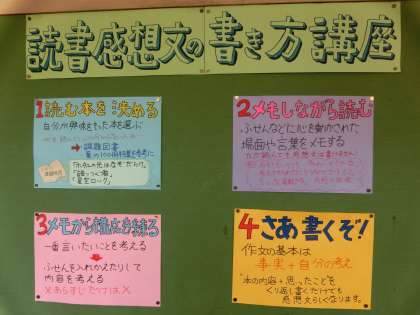 読書感想文の書き方講座
1 読む本を決める
自分が興味をもった本を選ぶ
→ 課題図書
2 メモしながら読む
ふせんなどに心を動かされた
場面や言葉をメモする
3 メモから構成を練る
一番言いたいことを考える
ふせんを入れかえたりして
内容を考える
×あらすじだけは×
4 さあ書くぞ!
作文の基本は
事実+自分の考え
本の内容+思ったことを
くり返し書くだけでも
感想文らしくなります。